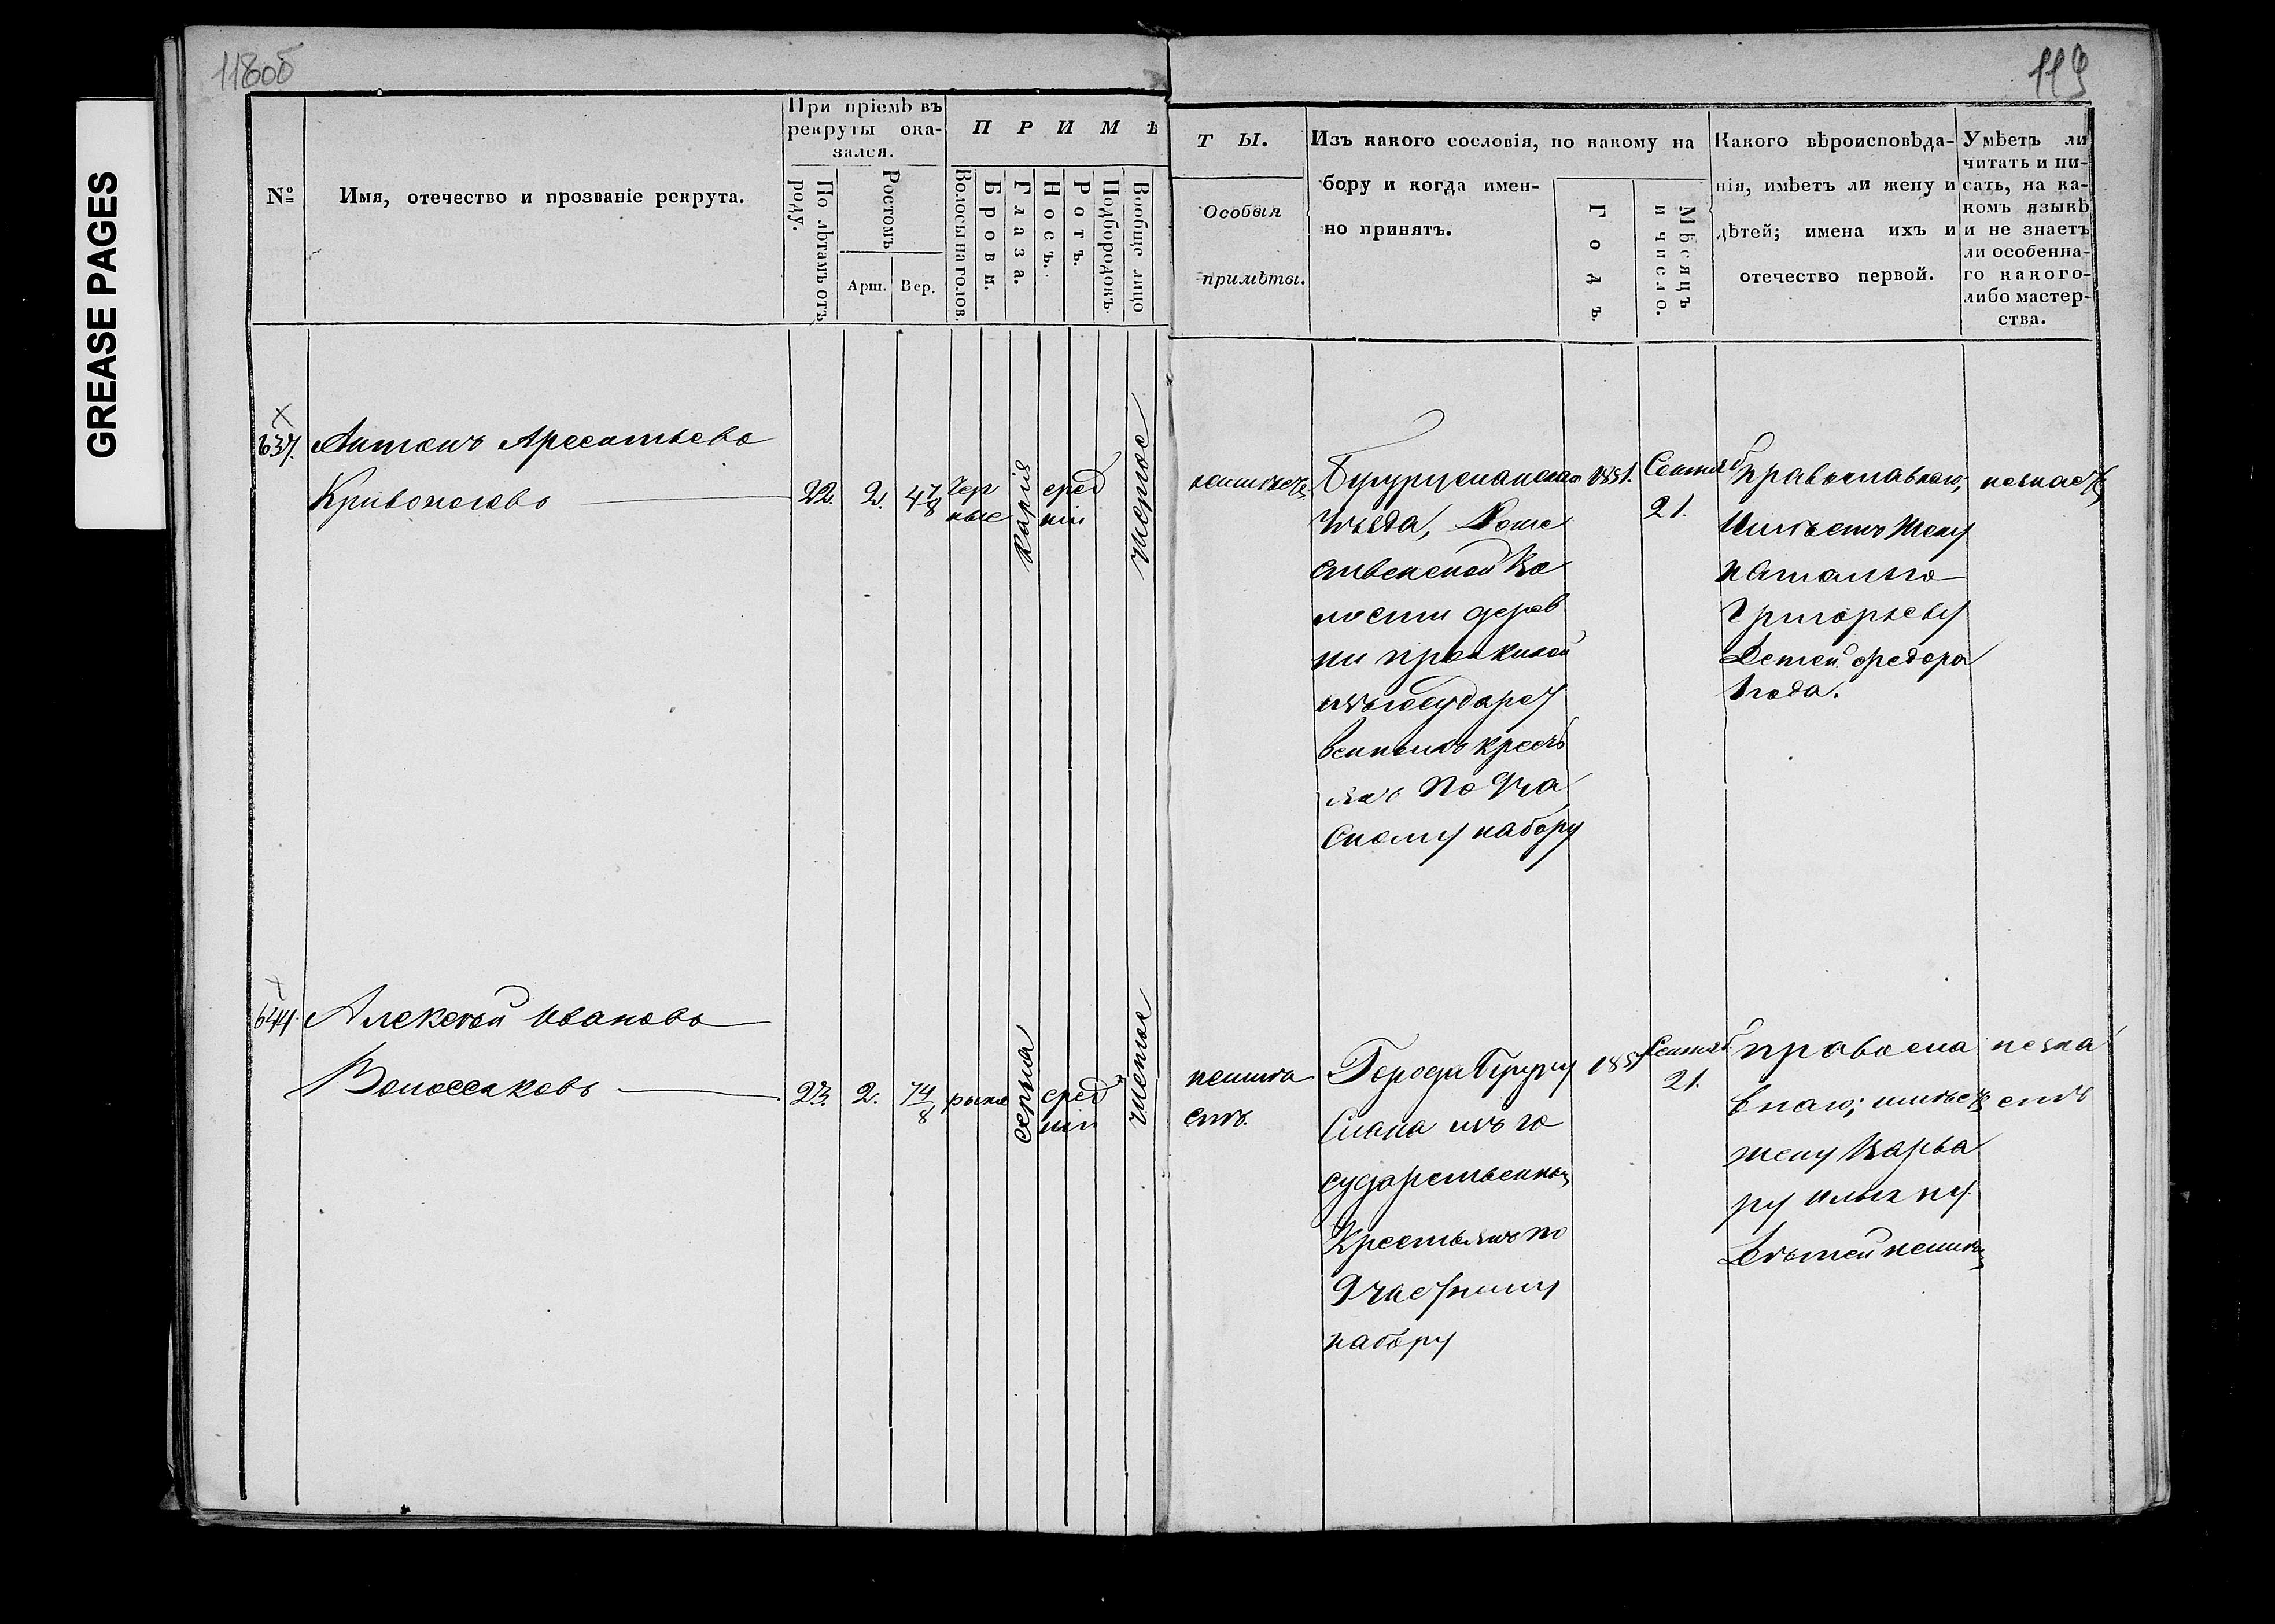 GREASE PAGES
118об
119
№
Имя, отечество и прозваніе рекрута.
При пріемѣ въ
рекруты ока-
зался.
По лѣтамъ отъ
роду.
Ростомъ
Арш.
Вер.
ПРИМѢ
Волосы на голов.
Брови.
Глаза.
Носъ.
Ротъ.
Подбородокъ.
Вообще лицо
ТЫ.
Особыя
примѣты.
Изъ какого сословія, по какому на
бору и когда имен-
но принятъ.
Годъ.
Мѣсяцъ
и число.
Какого вѣроисповѣда-
нія, имѣетъ ли жену и
дѣтей; имена ихъ и
отечество первой.
Умѣетъ ли
читать и пи-
сать, на ка-
комъ языкѣ
и не знаетъ
ли особенна-
го какого-
либо мастер-
ства.
637.
Антонъ
Кривоноговъ
22.
2.
4 7/8
Чер
ные
Карія
сред
ніи
неимѣетъ
Бугурусланскаго
уѣзда,
ственской Во
лости дерев
ни
изъ государст
венныхъ кресть
янъ по 9 ча
стному набору
1851.
Сентяб
21.
Православнаго,
Имѣетъ жену
Наталью
Григорьеву
Детей Федора
1 года.
незнаетъ
644.
Алексѣй Ивановъ
23.
2.
7 4/8
серыя
сред
ніи
чистое
неимѣ
етъ.
Города Бугуру
слана изъ го
сударственныхъ
Крестьянъ по
9 частному
набору
1851
Сентяб
21.
правосла
внаго; имѣетъ
жену Варва
ру Ильину
Дѣтей неимѣетъ
незна
етъ